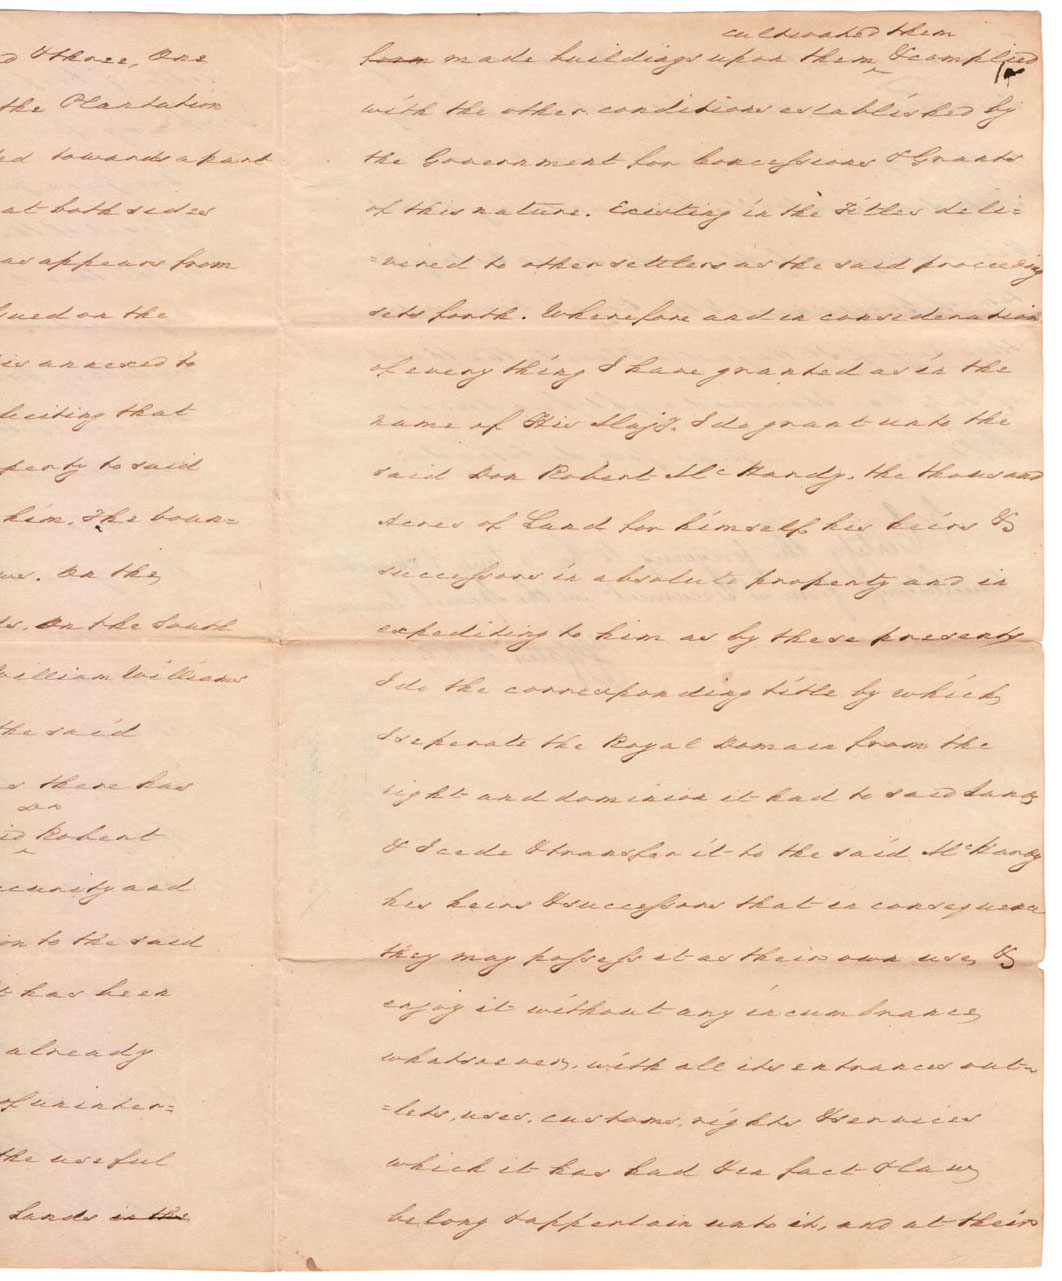 d & three, One
the Plantation
ed towards a part
at both sides
as appears from
sued on the
is annexed to
liciting that
perty to said
him. The boun=
ws. On the
ts. On the South
William Williams
the said
s there has
Dn
id Robert
ecurity and
on to the said
t has been
already
of uninter=
the useful
Lands in the
cultivated them
been made buildings upon them & complied
with the other conditions established by
the Government for Concessions & Grants
of this nature. Existing in the Titles deli=
=vered to other settlers as the said proceeding
sets forth. Wherefore and in consideration
of every thing I have granted as in the
name of His Majy. I do grant unto the
said Don Robert McHardy, the thousand
Acres of Land for himself his heirs &
successors in absolute property and in
expediting to him as by these presents
I do the corresponding title by which
I seperate the Royal Domain from the
right and dominion it had to said Land
& I cede & transfer it to the said McHardy
his heirs & successors that in consequence
they may possess it as their own use, &
enjoy it without any incumbrance
whatsoever, with all its entrances out=
=lets, uses, customs, rights & services
which it has had & in fact & law
belong & appertain unto it, and at their